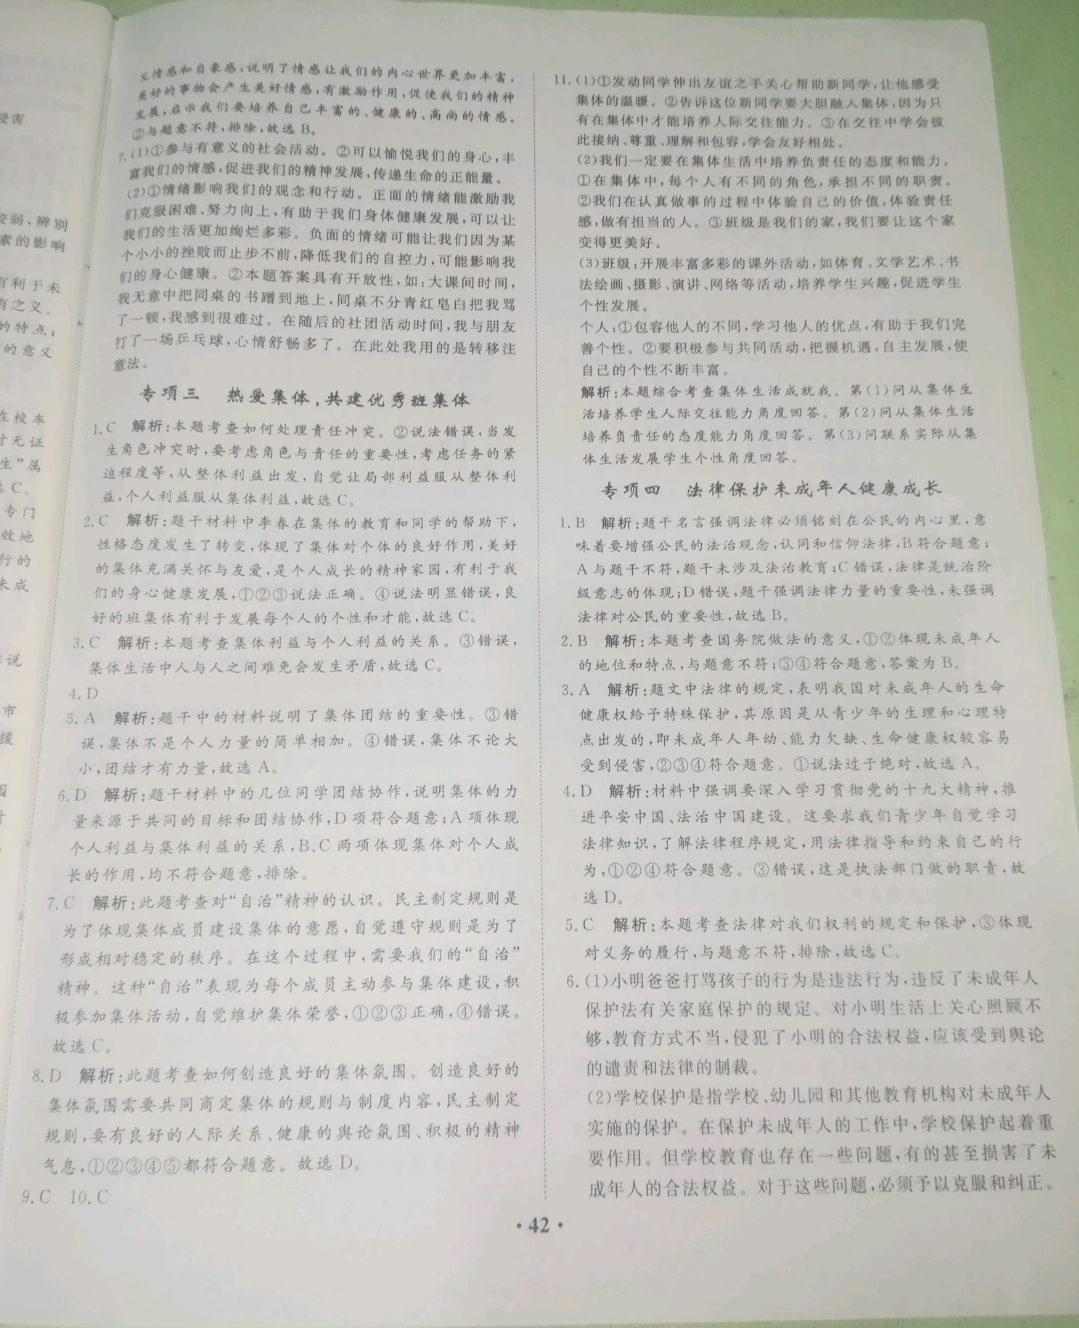 义情感和自豪感,说明了情感让我们的内心世界更加丰富,
美好的事物会产生美好情感,有激励作用、促使我们的精神
发展,启示我们要培养自己丰富的、健康的、高尚的情感。
②与题意不符,排除,故选 B。
7.(1)①参与有意义的社会活动。②可以愉悦我们的身心,丰
富我们的情感,促进我们的精神发展,传递生命的正能量。
(2)①情绪影响我们的观念和行动。正面的情绪能激励我
们克服困难、努力向上,有助于我们身体健康发展,可以让
我们的生活更加绚烂多彩。负面的情绪可能让我们因为某
个小小的挫败而止步不前,降低我们的自控力,可能影响我
们的身心健康。②本题答案具有开放性,如:大课间时间,
我无意中把同桌的书蹭到地上,同桌不分青红皂白把我骂
了一顿,我感到很难过。在随后的社团活动时间,我与朋友
打了一场乒乓球,心情舒畅多了。在此处我用的是转移注
意法。
专项三 热爱集体,共建优秀班集体
1.C 解析:本题考查如何处理责任冲突。②说法错误,当发
生角色冲突时,要考虑角色与责任的重要性,考虑任务的紧
迫程度等,从整体利益出发,自觉让局部利益服从整体利
益,个人利益服从集体利益,故选 C。
2.C 解析:题干材料中李春在集体的教育和同学的帮助下,
性格态度发生了转变,体现了集体对个体的良好作用,美好
的集体充满关怀与友爱,是个人成长的精神家园,有利于我
们的身心健康发展,①②③说法正确。④说法明显错误,良
好的班集体有利于发展每个人的个性和才能,故选 C。
3.C 解析:本题考查集体利益与个人利益的关系。③错误,
集体生活中人与人之间难免会发生矛盾,故选 C。
4.D
5.A 解析:题干中的材料说明了集体团结的重要性。③错
误,集体不是个人力量的简单相加。④错误,集体不论大
小,团结才有力量,故选 A。
6.D 解析:题干材料中的几位同学团结协作,说明集体的力
量来源于共同的目标和团结协作,D 项符合题意;A 项体现
个人利益与集体利益的关系,B、C 两项体现集体对个人成
长的作用,均不符合题意,排除。
7.C 解析:此题考查对“自治”精神的认识。民主制定规则是
为了体现集体成员建设集体的意愿,自觉遵守规则是为了
形成相对稳定的秩序。在这个过程中,需要我们的“自治”
精神。这种“自治”表现为每个成员主动参与集体建设,积
极参加集体活动,自觉维护集体荣誉,①②③正确,④错误。
故选 C。
8.D 解析:此题考查如何创造良好的集体氛围。创造良好的
集体氛围需要共同商定集体的规则与制度内容,民主制定
规则,要有良好的人际关系、健康的舆论氛围、积极的精神
气息,①②③④⑤都符合题意。故选 D。
9.C 10.C
11.(1)①发动同学伸出友谊之手关心帮助新同学,让他感受
集体的温暖。②告诉这位新同学要大胆融入集体,因为只
有在集体中才能培养人际交往能力。③在交往中学会彼
此接纳、尊重、理解和包容,学会友好相处。
(2)我们一定要在集体生活中培养负责任的态度和能力。
①在集体中,每个人有不同的角色,承担不同的职责。
②我们在认真做事的过程中体验自己的价值,体验责任
感,做有担当的人。③班级是我们的家,我们要让这个家
变得更美好。
(3)班级:开展丰富多彩的课外活动,如体育、文学艺术、书
法绘画、摄影、演讲、网络等活动,培养学生兴趣,促进学生
个性发展。
个人:①包容他人的不同,学习他人的优点,有助于我们完
善个性。②要积极参与共同活动,把握机遇,自主发展,使
自己的个性不断丰富。
解析:本题综合考查集体生活成就我。第(1)问从集体生
活培养学生人际交往能力角度回答。第(2)问从集体生活
培养负责任的态度能力角度回答。第(3)问联系实际从集
体生活发展学生个性角度回答。
专项四 法律保护未成年人健康成长
1.B 解析:题干名言强调法律必须铭刻在公民的内心里,意
味着要增强公民的法治观念,认同和信仰法律,B 符合题意;
A 与题干不符,题干未涉及法治教育;C 错误,法律是统治阶
级意志的体现;D 错误,题干强调法律力量的重要性,未强调
法律对公民的重要性,故选 B。
2.B 解析:本题考查国务院做法的意义,①②体现未成年人
的地位和特点,与题意不符;③④符合题意,答案为 B。
3.A 解析:题文中法律的规定,表明我国对未成年人的生命
健康权给予特殊保护,其原因是从青少年的生理和心理特
点出发的,即未成年人年幼、能力欠缺、生命健康权较容易
受到侵害,②③④符合题意。①说法过于绝对,故选 A。
4.D 解析:材料中强调要深入学习贯彻党的十九大精神,推
进平安中国、法治中国建设。这要求我们青少年自觉学习
法律知识,了解法律程序规定,用法律指导和约束自己的行
为,①②④符合题意。③错误,这是执法部门做的职责,故
选 D。
5.C 解析:本题考查法律对我们权利的规定和保护,③体现
对义务的履行,与题意不符,排除,故选 C。
6.(1)小明爸爸打骂孩子的行为是违法行为,违反了未成年人
保护法有关家庭保护的规定。对小明生活上关心照顾不
够,教育方式不当,侵犯了小明的合法权益,应该受到舆论
的谴责和法律的制裁。
(2)学校保护是指学校、幼儿园和其他教育机构对未成年人
实施的保护。在保护未成年人的工作中,学校保护起着重
要作用。但学校教育也存在一些问题,有的甚至损害了未
成年人的合法权益。对于这些问题,必须予以克服和纠正。
·42·